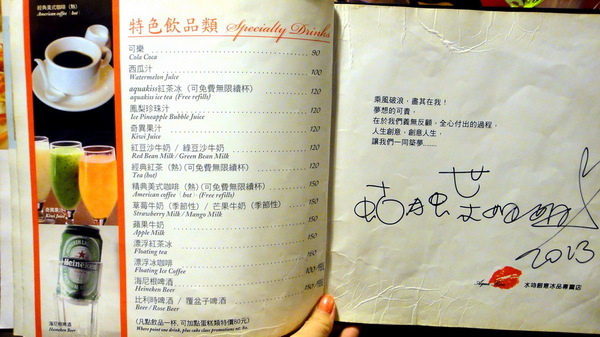 經典美式咖啡（熱）
American coffee（hot）
奇異果汁
Kiwi Juice
海尼根啤酒
Heineken Beer
Heineken
特色飲品類 Specialty Drinks
可樂 90
Cola Coca
西瓜汁 100
Watermelon Juice
aquakiss紅茶冰（可免費無限續杯） 120
aquakiss ice tea (Free refills)
鳳梨珍珠汁 120
Ice Pineapple Bubble Juice
奇異果汁 120
Kiwi Juice
紅豆沙牛奶 / 綠豆沙牛奶 120
Red Bean Milk / Green Bean Milk
經典紅茶（熱）（可免費無限續杯） 120
Tea (hot)
精典美式咖啡（熱）（可免費無限續杯） 150
American coffee（hot）(Free refills)
草莓牛奶（季節性）/ 芒果牛奶（季節性） 150
Strawberry Milk / Mango Milk
蘋果牛奶 150
Apple Milk
漂浮紅茶冰 150
Floating tea
漂浮冰咖啡 150
Floating Ice Coffee
海尼根啤酒 100/瓶
Heineken Beer
比利時啤酒 / 覆盆子啤酒 150/瓶
Beer / Rose Beer
（凡點飲品一杯, 可加點蛋糕類特價80元）
乘風破浪，盡其在我！
夢想的可貴，
在於我們義無反顧，全心付出的過程，
人生創意，創意人生，
讓我們一同築夢……
2013
水吻創意冰品專賣店